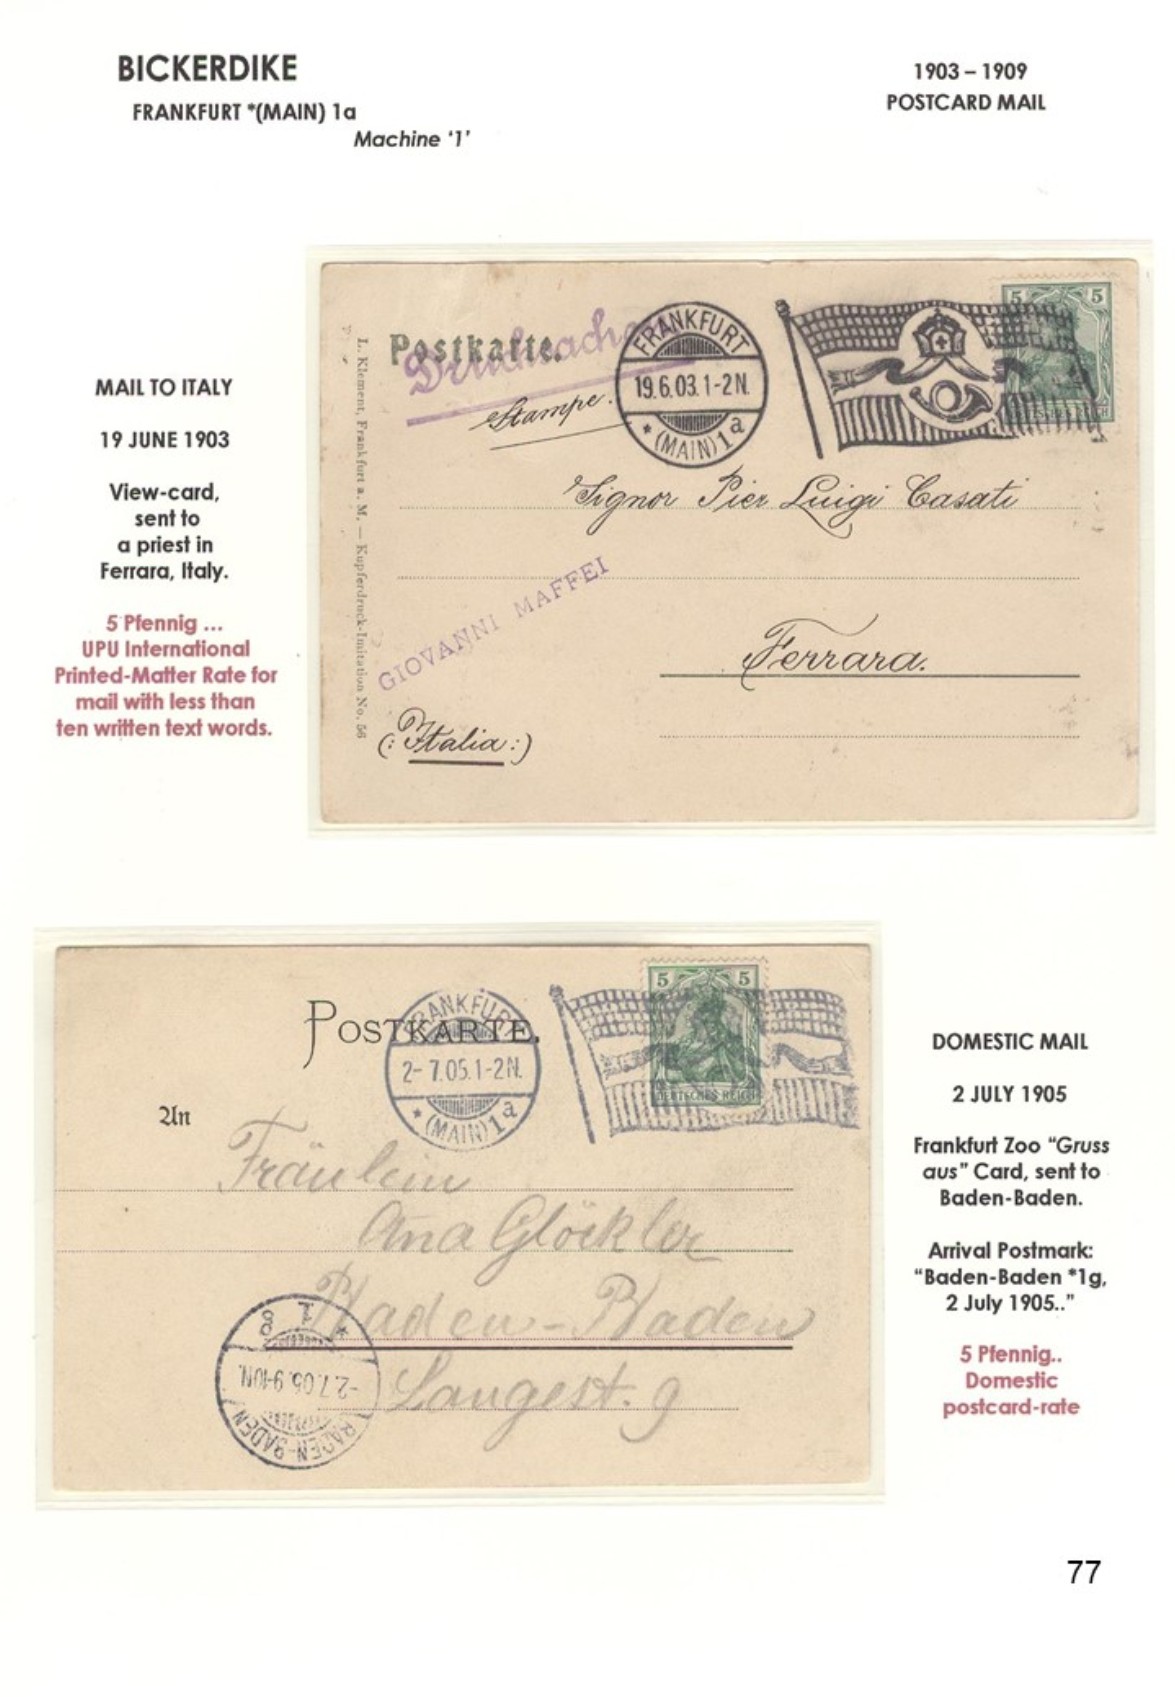 BICKERDIKE
FRANKFURT *(MAIN) 1a
Machine ‘1’
1903 – 1909
POSTCARD MAIL
MAIL TO ITALY
19 JUNE 1903
View-card,
sent to
a priest in
Ferrara, Italy.
5 Pfennig ...
UPU International
Printed-Matter Rate for
mail with less than
ten written text words.
Postkarte.
Drucksache
Stampe.
FRANKFURT
19.6.03.1-2N.
* (MAIN) 1a
5 5
DEUTSCHES REICH
L. Klement, Frankfurt a. M. — Kupferdruck-Imitation No. 56
Signor Pier Luigi Casati
GIOVANNI MAFFEI
Ferrara.
(: Italia :)
POSTKARTE.
FRANKFURT
2-7.05.1-2N.
* (MAIN) 1a
5 5
DEUTSCHES REICH
An
Fräulein
Ana Glöckler
Baden-Baden
Langest. 9
BADEN-BADEN
-2.7.05.9-10N.
* 1g
DOMESTIC MAIL
2 JULY 1905
Frankfurt Zoo “Gruss
aus” Card, sent to
Baden-Baden.
Arrival Postmark:
“Baden-Baden *1g,
2 July 1905..”
5 Pfennig..
Domestic
postcard-rate
77